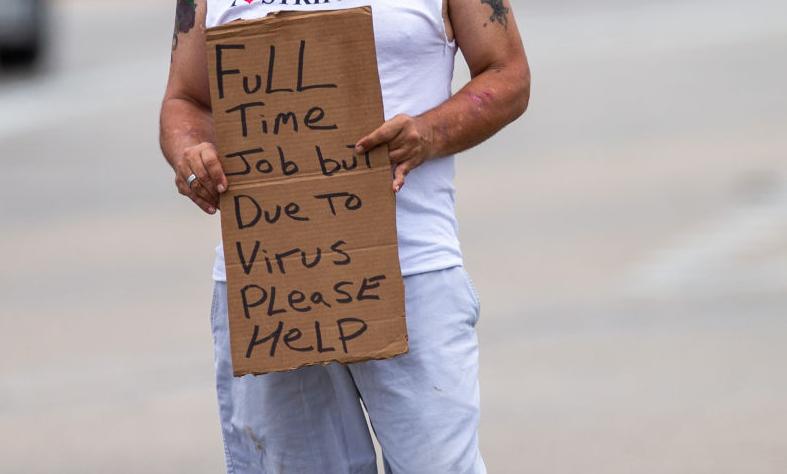 FuLL
Time
Job buT
Due To
Virus
PLeaSE
HeLP